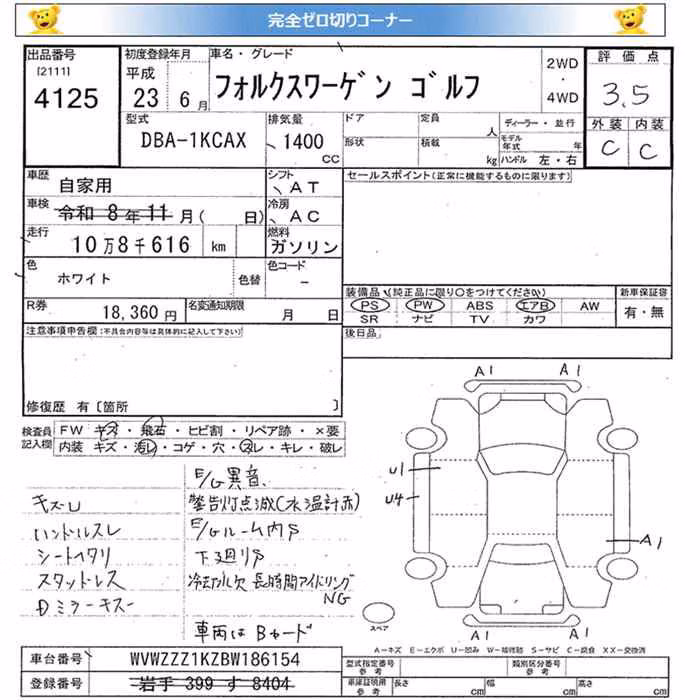 完全ゼロ切りコーナー
出品番号 初度登録年月 車名・グレード 2WD・4WD 評価点
[2111] 4125 平成 23 6月 フォルクスワーゲン ゴルフ 3.5
外装 内装
C C
型式 排気量 ドア 定員 人 ディーラー・並行
DBA-1KCAX 1400 cc 形状 積載 kg モデル年式 年
ハンドル 左・右
車歴 自家用 シフト AT セールスポイント(正常に機能するものに限ります)
車検 令和 8年 11月( 日) 冷房 AC
走行 10万8千616 km 燃料 ガソリン
色 ホワイト 色替 色コード -
装備品(純正品に限り○をつけてください) 新車保証書
R券 18,360円 名変通知期限 月 日
PS PW ABS エアB AW 有・無
SR ナビ TV カワ
注意事項申告欄(不具合内容等は具体的に記入して下さい) 後日品
修復歴 有〔箇所 〕
検査員記入欄 FW キズ・飛石・ヒビ割・リペア跡・×要
内装 キズ・汚レ・コゲ・穴・スレ・キレ・破レ
A1 A1
E/G異音
キズU 警告灯点滅(水温計赤)
ハンドルスレ E/Gルーム内S
シートヘタリ 下廻りS
スタッドレス 冷却水欠 長時間アイドリングNG
Dミラーキズ
車両はBヤード
U1
U4
A1
A1 A1
スペア
A-キズ E-エクボ U-凹み W-補修跡 S-サビ C-腐食 XX-交換済
車台番号 WVWZZZ1KZBW186154 型式指定番号 参考 類別区分番号 参考
登録番号 岩手 399 す 8404 車庫証明用 参考 長さ cm 幅 cm 高さ cm